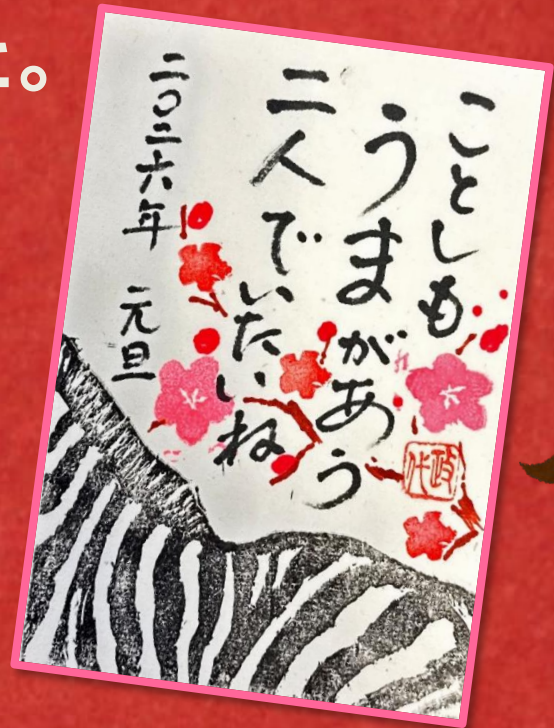 た。
ことしも
うまがあう
二人で
いたいね
二〇二六年 元旦
政代